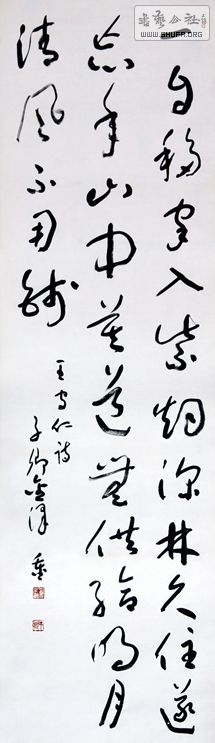 書法公社
WWW.SHUFA.ORG
一自移家入紫烟深林久住遂
忘年山中莫道無供給明月
清風不用錢
王守仁詩
子卿金澤